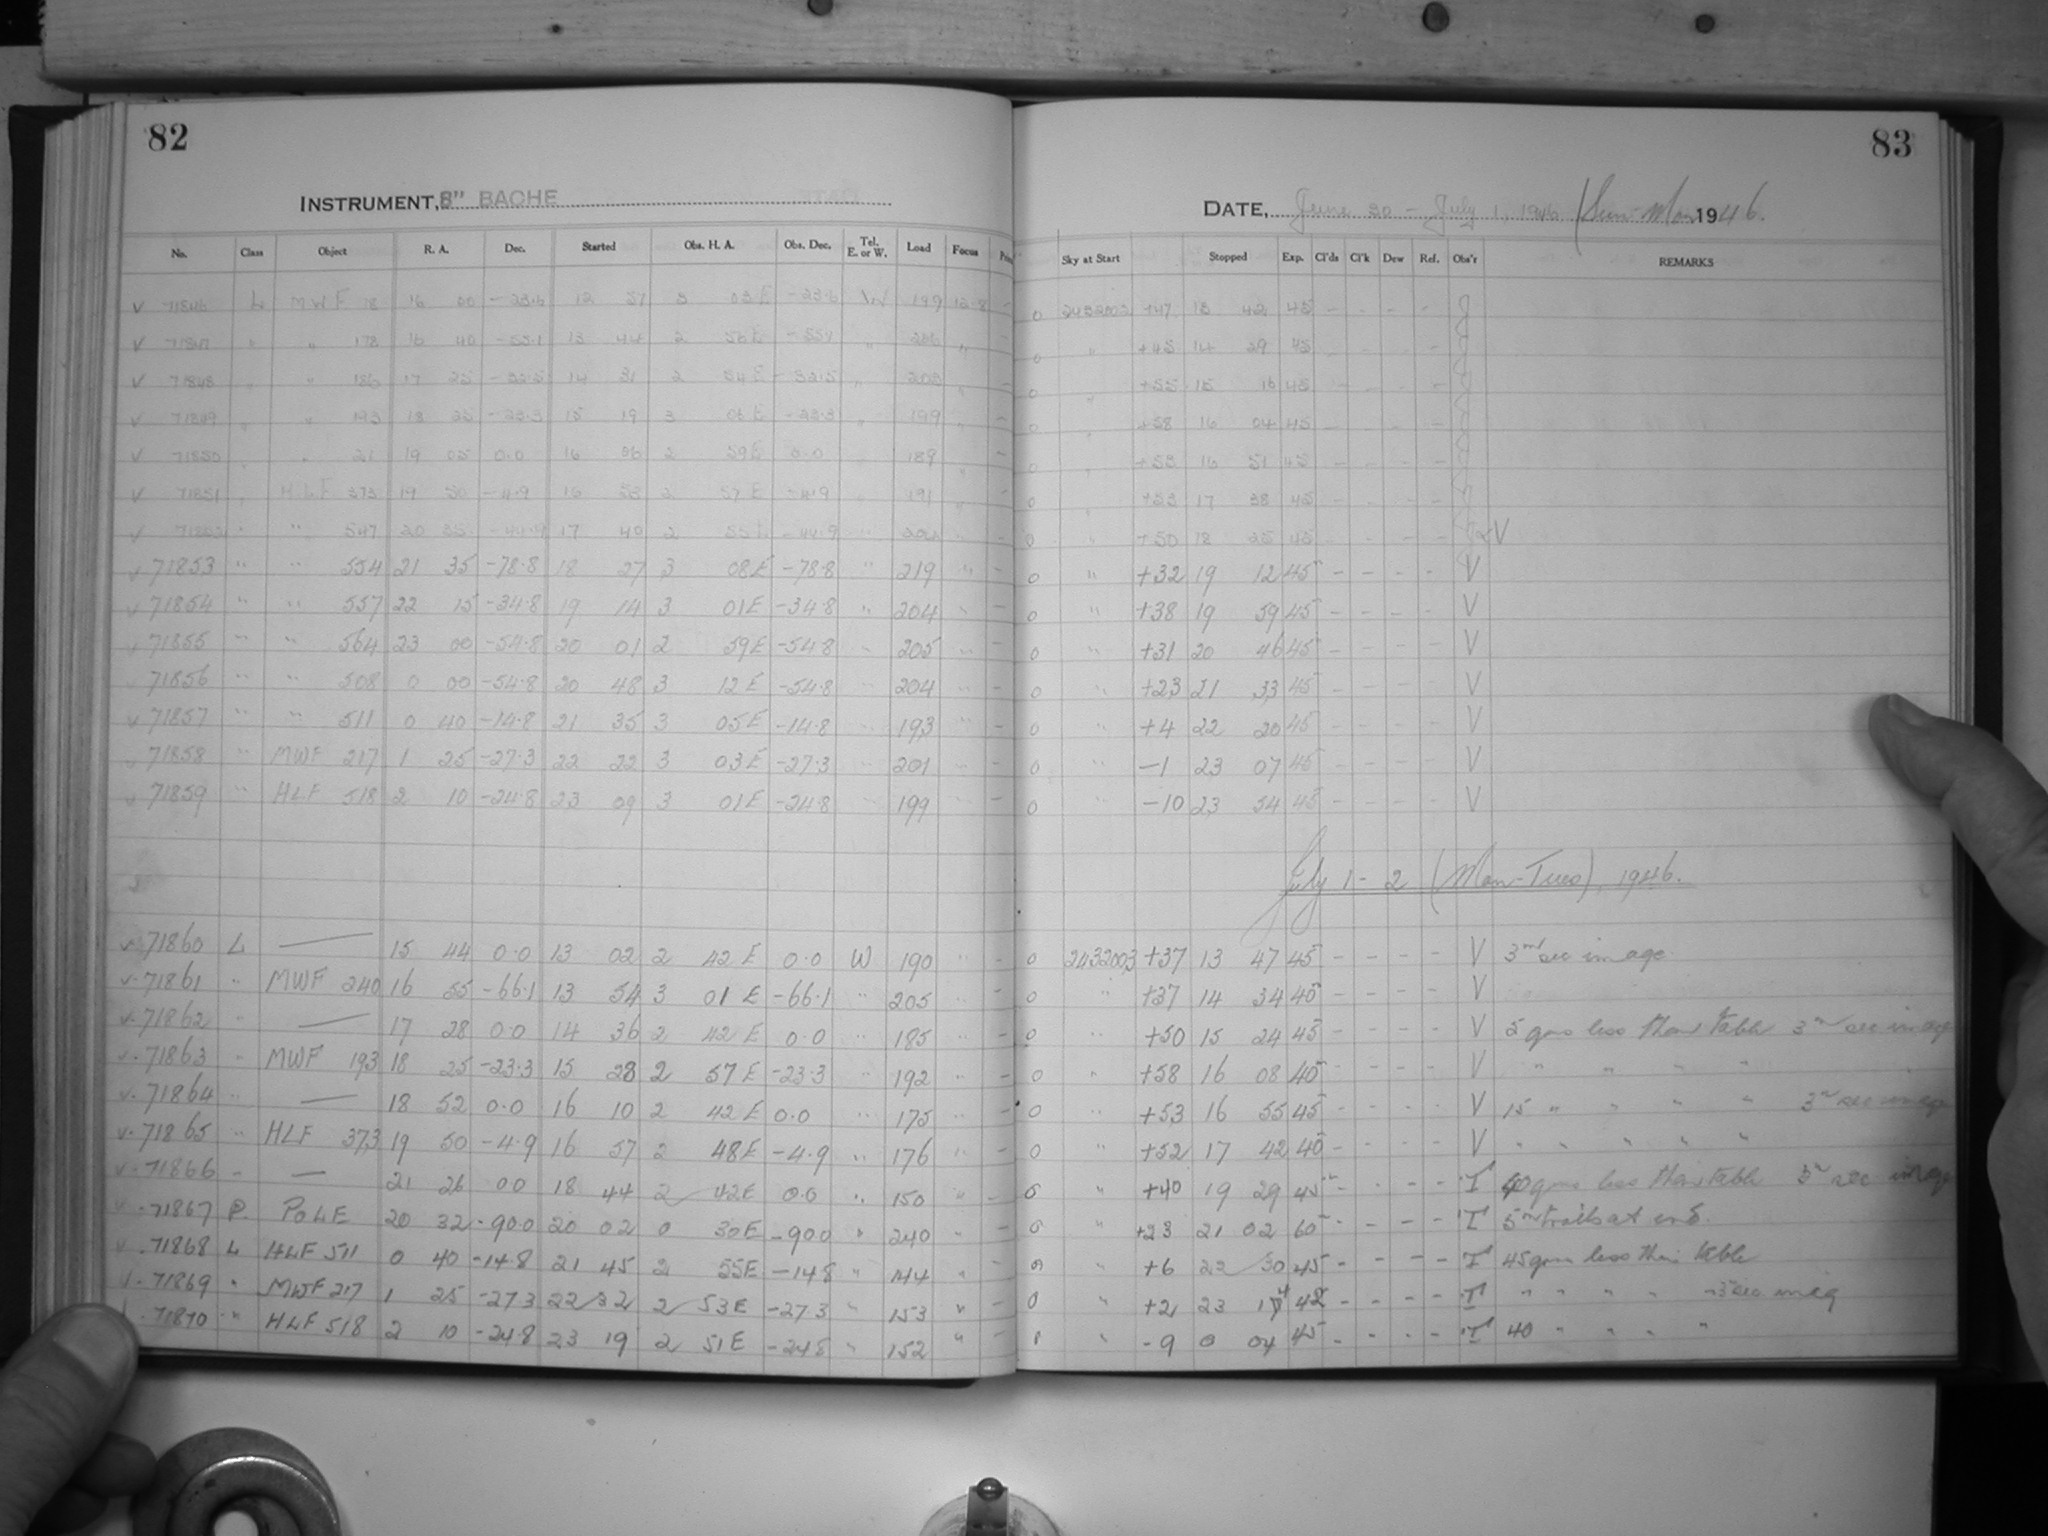 82
INSTRUMENT, 8" BACHE
No. Class Object R. A. Dec. Started Obs. H. A. Obs. Dec. Tel. E. or W. Load Focus
v 71846 L MWF 8 16 00 -23.6 12 57 3 03 E -23.6 W 199 12.8 -
v 71847 " " 178 16 40 -55.1 13 44 2 56 E " 206 " -
v 71848 " " 186 17 25 -32.5 14 31 2 54 E -32.5 " 203 " -
v 71849 " " 193 18 25 -23.3 15 19 3 06 E -23.3 " 199 " -
v 71850 " " 21 19 05 0.0 16 06 2 59 E 0.0 189 " -
v 71851 " HLF 373 19 50 -4.9 16 53 2 57 E -4.9 " 191 " -
v 71852 " " 547 20 35 -44.9 17 40 2 55 E -44.9 " 204 " -
v 71853 " " 554 21 35 -78.8 18 27 3 08 E -78.8 " 219 " -
v 71854 " " 557 22 15 -34.8 19 14 3 01 E -34.8 " 204 " -
v 71855 " " 564 23 00 -54.8 20 01 2 59 E -54.8 " 205 " -
71856 " " 508 0 00 -54.8 20 48 3 12 E -54.8 " 204 " -
v 71857 " " 511 0 40 -14.8 21 35 3 05 E -14.8 " 193 " -
v 71858 " MWF 217 1 25 -27.3 22 22 3 03 E -27.3 " 201 " -
v 71859 " HLF 518 2 10 -24.8 23 09 3 01 E -24.8 " 199 " -
v 71860 L — 15 44 0.0 13 02 2 42 E 0.0 W 190 " -
v 71861 " MWF 240 16 55 -66.1 13 54 3 01 E -66.1 " 205 " -
v 71862 " — 17 28 0.0 14 36 2 42 E 0.0 " 185 " -
v 71863 " MWF 193 18 25 -23.3 15 23 2 57 E -23.3 " 192 " -
v 71864 " — 18 52 0.0 16 10 2 42 E 0.0 " 175 " -
v 71865 " HLF 373 19 50 -4.9 16 57 2 48 E -4.9 " 176 " -
v 71866 - — 21 26 0.0 18 44 2 42 E 0.0 " 150 " -
v 71867 P. POLE 20 32 -90.0 20 02 0 30 E -90.0 " 240 " -
v 71868 L HLF 511 0 40 -14.8 21 45 2 55 E -14.8 " 144 " -
v 71869 " MWF 217 1 25 -27.3 22 32 2 53 E -27.3 " 153 " -
71870 " HLF 518 2 10 -24.8 23 19 2 51 E -24.8 " 152 " -
83
DATE, June 30 - July 1, 1946 (Sun-Mon 1946.
Sky at Start Stopped Exp. Cl'ds Cl'k Dew Ref. Obs'r REMARKS
0 2432002 +47 13 42 45 - - - - J
0 " +45 14 29 45 J
0 " +55 15 16 45 - - - - J
0 " +58 16 04 45 - - - - J
0 " +53 16 51 45 - - - - J
0 " +53 17 38 45 - - - - J
0 " +50 18 25 45 - - - - J&V
0 " +32 19 12 45 - - - - V
0 " +38 19 59 45 - - - - V
0 " +31 20 46 45 - - - - V
0 " +23 21 33 45 - - - - V
0 " +4 22 20 45 - - - - V
0 " -1 23 07 45 - - - - V
0 " -10 23 54 45 - - - - V
July 1 - 2 (Mon-Tues), 1946.
0 2432003 +37 13 47 45 - - - - V 3rd sec image
0 " +37 14 34 40 - - - - V
0 " +50 15 24 45 - - - - V 5 gms less than table 3rd sec image
0 " +58 16 08 45 - - - - V " " " "
0 " +53 16 55 45 - - - - V 15 " " " " 3rd sec image
0 " +52 17 42 45 - - - - V " " " " "
0 " +40 19 29 45 - - - - T 40 gms less than table 3rd sec image
0 " +23 21 02 60 - - - - T 5m trails at end.
0 " +6 22 30 45 - - - - T 45 gms less than table
0 " +2 23 14 42 - - - - T " " " " " 3 sec image
" -9 0 04 45 - - - - T 40 " " " "